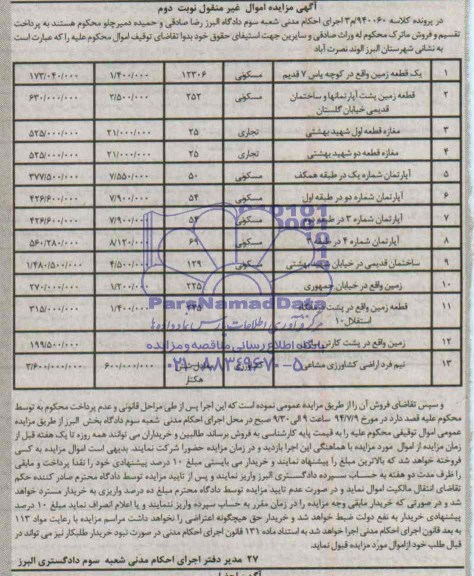 آگهی مزایده اموال غیر منقول نوبت دوم
در پرونده کلاسه ۹۴۰۰۶۰/م۳ اجرای احکام مدنی شعبه سوم دادگاه البرز رضا صادقی و حمیده دمیرچلو محکوم هستند به پرداخت
تقسیم و فروش ماترک محکوم له وراث صادقی و سایرین جهت استیفای حقوق خود بدوا تقاضای توقیف اموال محکوم علیه را که عبارت است
به نشانی شهرستان البرز الوند نصرت آباد
۱ یک قطعه زمین واقع در کوچه یاس ۷ قدیم مسکونی ۱۲۳۰۶ ۱/۴۰۰/۰۰۰ ۱۷۳/۰۴۰/۰۰۰
۲ قطعه زمین پشت آپارتمانها و ساختمان مسکونی ۲۵۲ ۲/۵۰۰/۰۰۰ ۶۳۰/۰۰۰/۰۰۰
قدیمی خیابان گلستان
۳ مغازه قطعه اول شهید بهشتی تجاری ۲۵ ۲۱/۰۰۰/۰۰۰ ۵۲۵/۰۰۰/۰۰۰
۴ مغازه قطعه دو شهید بهشتی تجاری ۲۵ ۲۱/۰۰۰/۰۰۰ ۵۲۵/۰۰۰/۰۰۰
۵ آپارتمان شماره یک در طبقه همکف مسکونی ۵۰ ۷/۵۵۰/۰۰۰ ۳۷۷/۵۰۰/۰۰۰
۶ آپارتمان شماره دو در طبقه اول مسکونی ۵۴ ۷/۹۰۰/۰۰۰ ۴۲۶/۶۰۰/۰۰۰
۷ آپارتمان شماره ۳ در طبقه مسکونی ۵۴ ۷/۹۰۰/۰۰۰ ۴۲۶/۶۰۰/۰۰۰
۸ آپارتمان شماره ۴ در طبقه مسکونی ۶۹ ۸/۱۲۰/۰۰۰ ۵۶۰/۲۸۰/۰۰۰
۹ ساختمان قدیمی در خیابان بهشتی مسکونی ۱۲۹ ۴/۵۰۰/۰۰۰ ۱/۴۸۰/۵۰۰/۰۰۰
۱۰ زمین واقع در خیابان جمهوری ۲۲۵ ۱/۲۰۰/۰۰۰ ۲۷۰/۰۰۰/۰۰۰
۱۱ قطعه زمین واقع در پشت ۱/۴۰۰/۰۰۰ ۳۱۵/۰۰۰/۰۰۰
استقلال ۱۰
۱۲ زمین واقع در پشت کارتن ۱۹۹/۵۰۰/۰۰۰
۱۳ نیم فرد اراضی کشاورزی مشاعی ۶۰۰/۰۰۰/۰۰۰ ۳/۶۰۰/۰۰۰/۰۰۰
هکتار
ParsNamadData
پایگاه اطلاع رسانی مناقصه و مزایده
۰۲۱-۸۸۳۴۹۶۷۰-۵
و سپس تقاضای فروش آن را از طریق مزایده عمومی نموده است که این اجرا پس از طی مراحل قانونی و عدم پرداخت محکوم به توسط
محکوم علیه قصد دارد در مورخ ۹۴/۷/۹ ساعت ۹ الی ۹/۳۰ صبح در محل اجرای احکام مدنی شعبه سوم دادگاه بخش البرز از طریق مزایده
عمومی اموال توقیفی محکوم علیه را به قیمت پایه کارشناسی به فروش برساند. طالبین و خریداران می توانند همه روزه تا یک هفته قبل از
زمان مزایده از اموال مورد مزایده با هماهنگی این اجرا بازدید و در زمان مزایده حضورا شرکت نمایند. بدیهی است اموال مزایده به کسی
فروخته خواهد شد که بالاترین مبلغ را پیشنهاد نمایند و خریدار می بایستی مبلغ ۱۰ درصد پیشنهادی خود را نقدا پرداخت و مابقی
را ظرف مدت دو هفته به حساب سپرده دادگستری البرز واریز نمایند و پس از تایید مزایده توسط دادگاه محترم صادر کننده حکم
تقاضای انتقال مالکیت اموال نماید و در صورت عدم تایید مزایده توسط دادگاه محترم مبلغ ده درصد واریزی به خریدار مسترد خواهد
شد و در صورتی که خریدار مابقی وجه مزایده را در زمان مقرر به حساب سپرده واریز ننمایند و یا اعلام انصراف نماید مبلغ ۱۰ درصد
پیشنهادی خریدار به نفع دولت ضبط خواهد شد و خریدار حق هیچگونه اعتراضی را نخواهد داشت مراسم مزایده با رعایت مواد ۱۱۳
به بعد قانون اجرای احکام مدنی اجرا خواهد شد به استناد ماده ۱۳۱ قانون اجرای احکام مدنی در صورت نبود خریدار طلبکار نیز می تواند در
قبال طلب خود از اموال مورد مزایده قبول نماید.
۲۷ مدیر دفتر اجرای احکام مدنی شعبه سوم دادگستری البرز